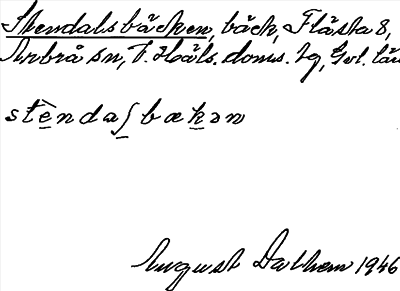 Stendalsbäcken, bäck, Flästa 8,
Arbrå sn, V. Häls. doms. tg, Gvl. län
stè̱ndaʃ̱bæḵən
August Dalhem 1946